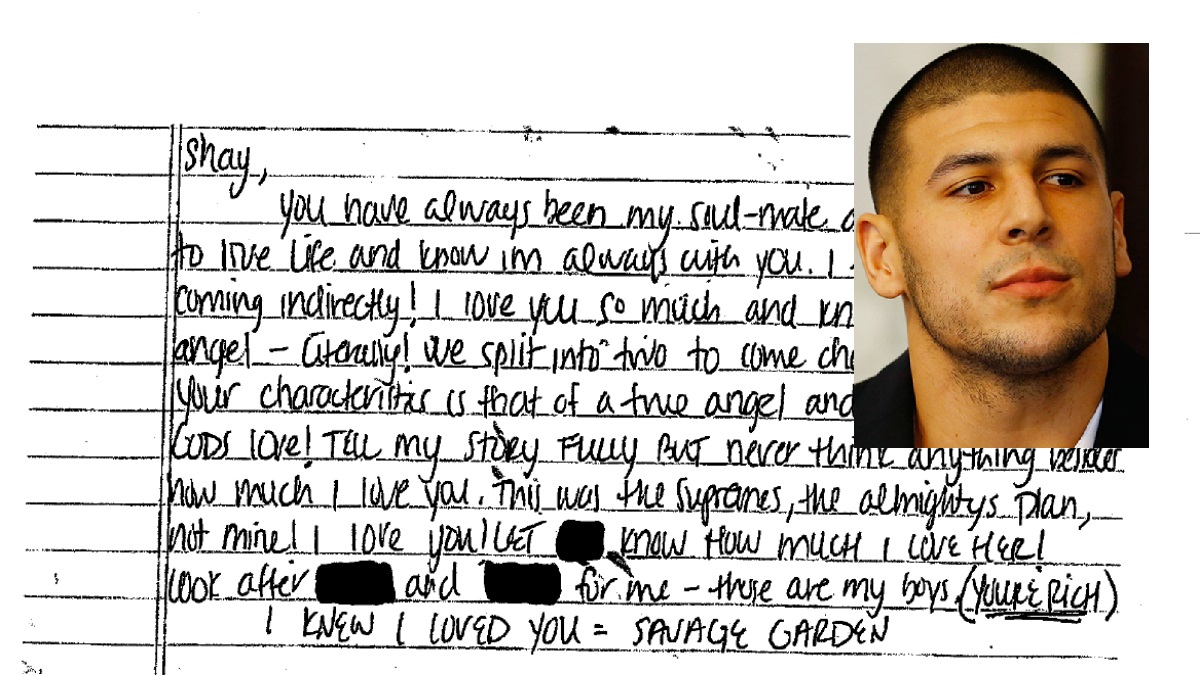 Shay,
You have always been my soul-mate
to live life and know im always with you. I
coming indirectly! I love you so much and kn
angel - Literally! We split into two to come ch
your characteristics is that of a true angel and
GODS love! TELL my STORY FULLY BUT never think anything besides
how much I love you. This was the supremes, the almightys plan,
not mine! I love you! LET KNOW HOW MUCH I LOVE HER!
look after and for me - those are my boys (YOURE RICH)
I KNEW I LOVED YOU = SAVAGE GARDEN